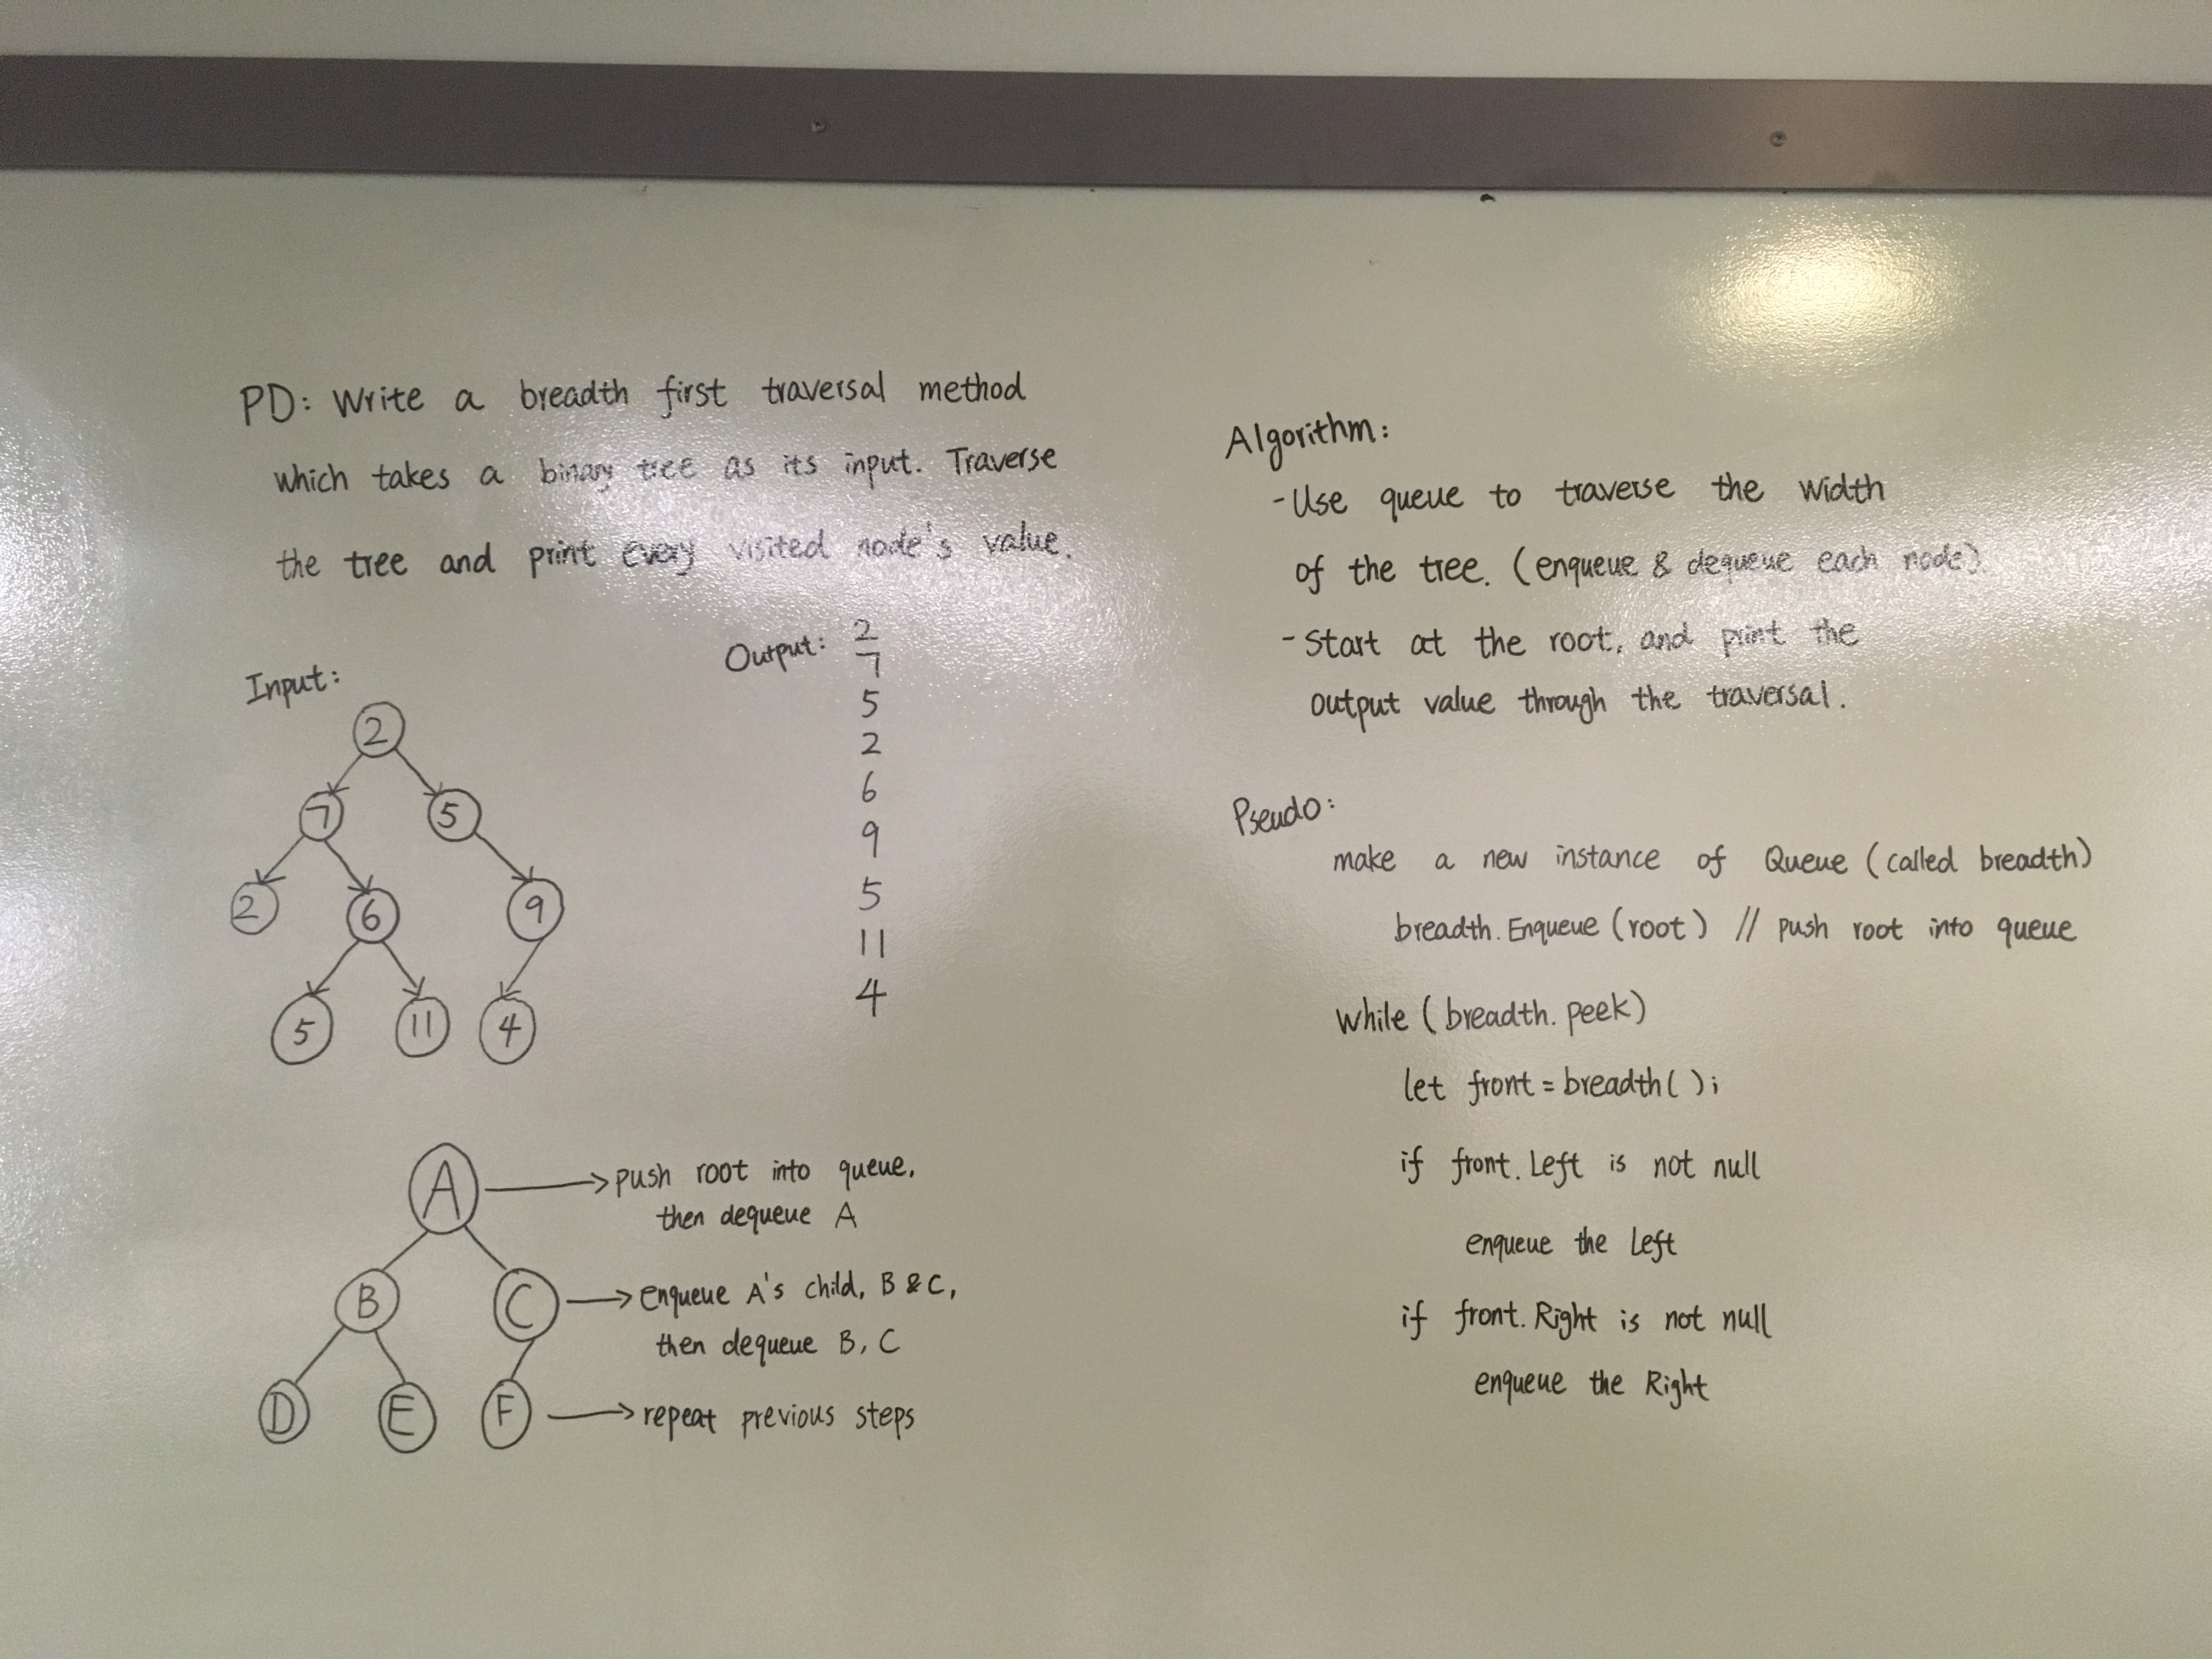 PD: Write a breadth first traversal method
which takes a binary tree as its input. Traverse
the tree and print every visited node's value.
Input:
2
7 5
2 6 9
5 11 4
Output: 2
7
5
2
6
9
5
11
4
A → push root into queue,
then dequeue A
B C → enqueue A's child, B & C,
then dequeue B, C
D E F → repeat previous steps
Algorithm:
- Use queue to traverse the width
of the tree. (enqueue & dequeue each node).
- Start at the root, and print the
output value through the traversal.
Pseudo:
make a new instance of Queue (called breadth)
breadth.Enqueue (root) // push root into queue
while (breadth.peek)
let front = breadth( );
if front.Left is not null
enqueue the Left
if front.Right is not null
enqueue the Right